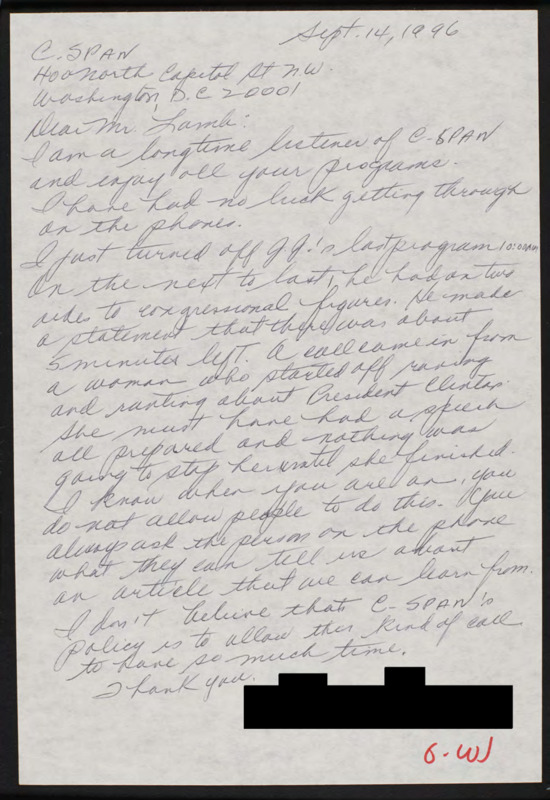 Sept. 14, 1996
C. SPAN
400 North Capitol St NW.
Washington, D.C 20001
Dear Mr. Lamb:
I am a longtime listener of C-SPAN
and enjoy all your programs.
I have had no luck getting through
on the phones.
I just turned off J.J.'s last program 10:00am
On the next to last, he had on two
aides to congressional figures. He made
a statement that there was about
5 minutes left. A call came in from
a woman who started off raving
and ranting about President Clinton.
She must have had a speech
all prepared and nothing was
going to stop her until she finished.
I know when you are on, you
do not allow people to do this. You
always ask the person on the phone
what they can tell us about
an article that we can learn from.
I don't believe that C-SPAN's
policy is to allow this kind of call
to have so much time.
Thank you.
6-W